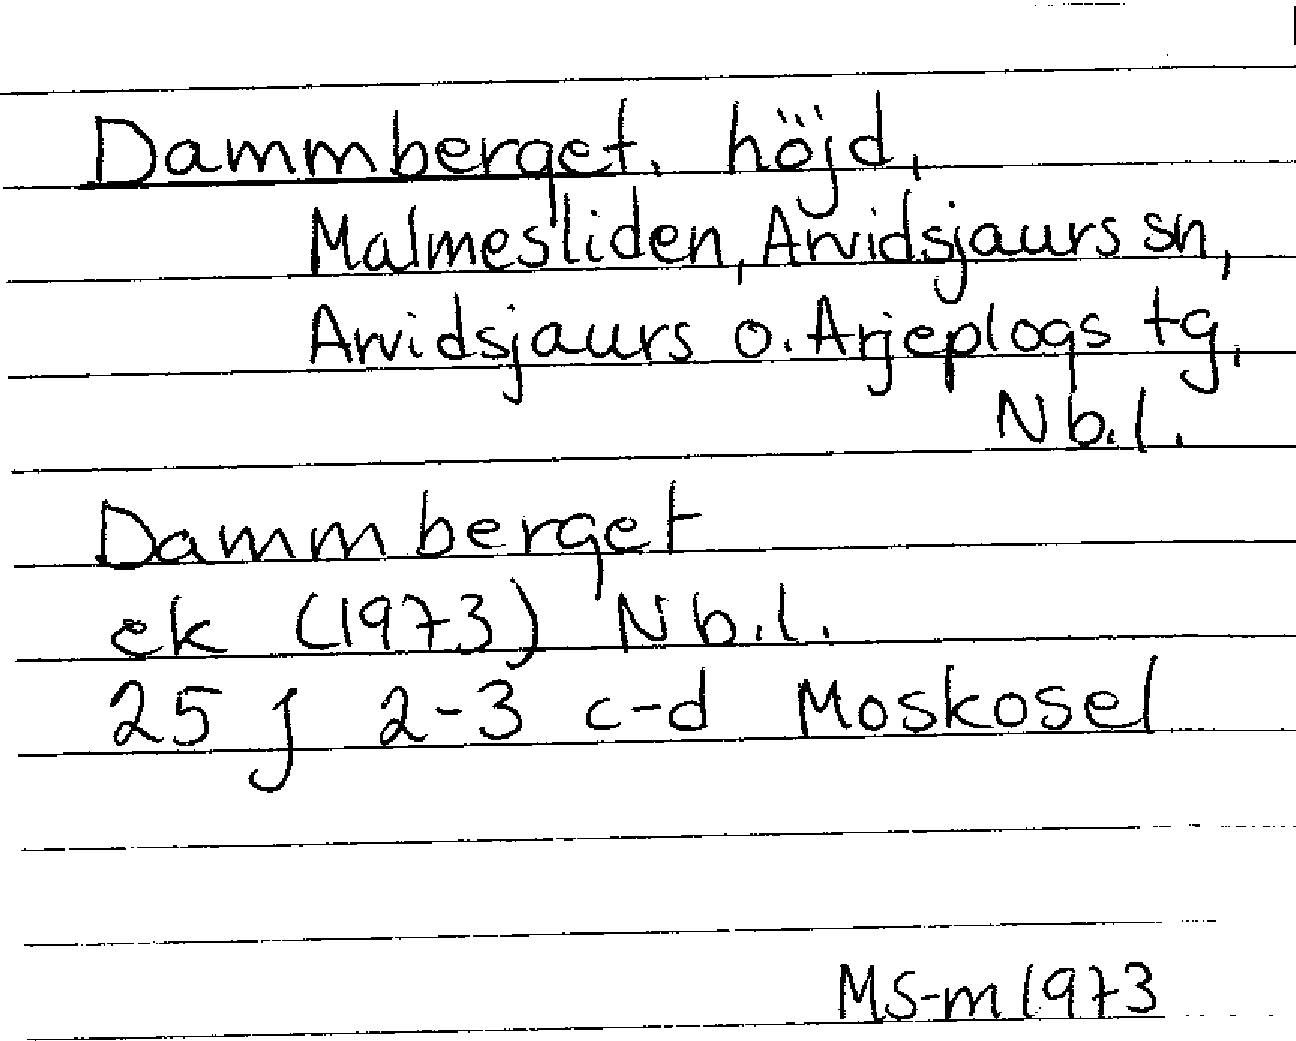 Dammberget, höjd,
Malmesliden, Arvidsjaurs sn,
Arvidsjaurs o. Arjeplogs tg,
Nb.l.
Dammberget
ek (1973) Nb.l.
25 J 2-3 c-d Moskosel
MS-m 1973